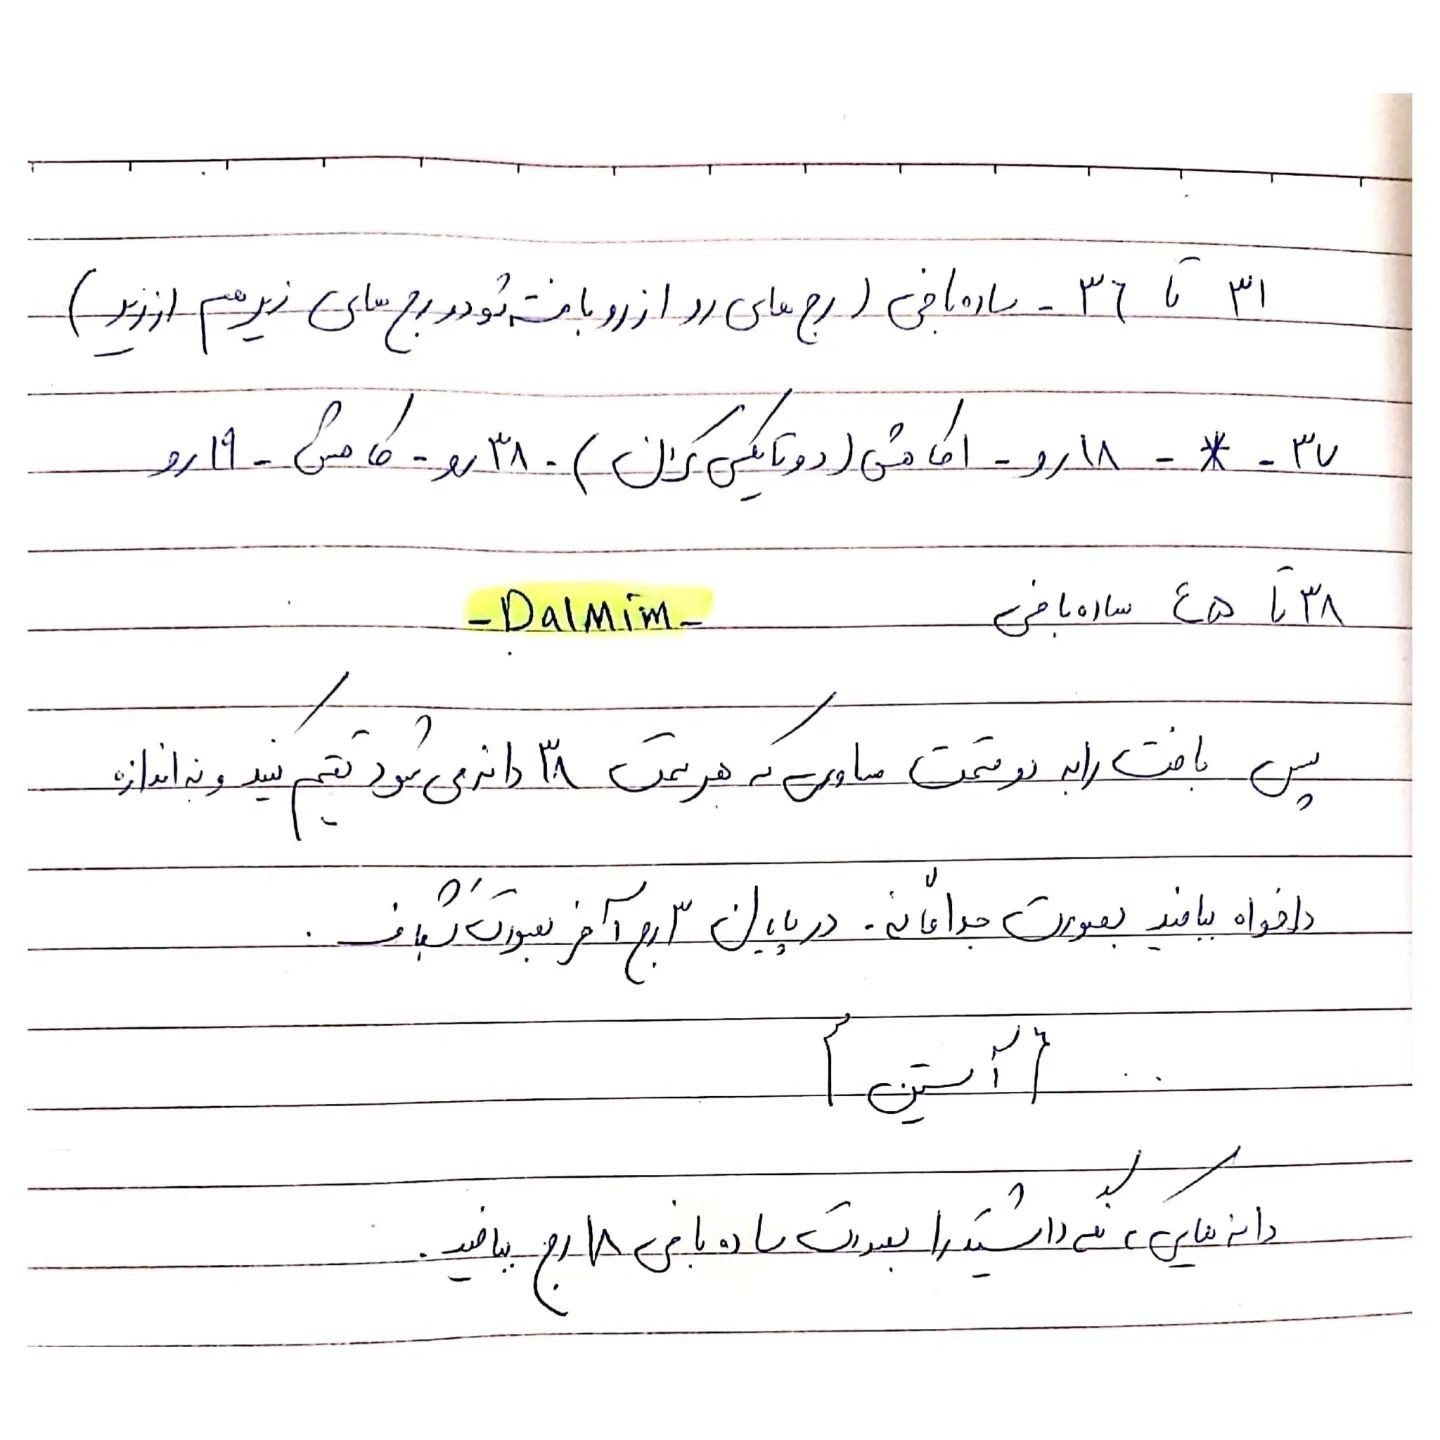 ۳۱ تا ۳۶ - ساده بافی (رج های رو از رو بافته شود و رج های زیر هم از زیر)
۳۷ - * - ۱۸ رو - ۱ کاهش (دو تا یکی کردن) - ۳۸ رو - کاهش - ۱۹ رو
۳۸ تا ۴۵ ساده بافی
-DalMim-
پس بافت را به دو قسمت مساوی که هر قسمت ۳۸ دانه می شود تقسیم کنید و به اندازه
دلخواه ببافید بصورت جداگانه. در پایان ۳ رج آخر بصورت کشباف.
{آستین}
دانه هایی که نگه داشتید را بصورت ساده بافی ۱۸ رج ببافید.